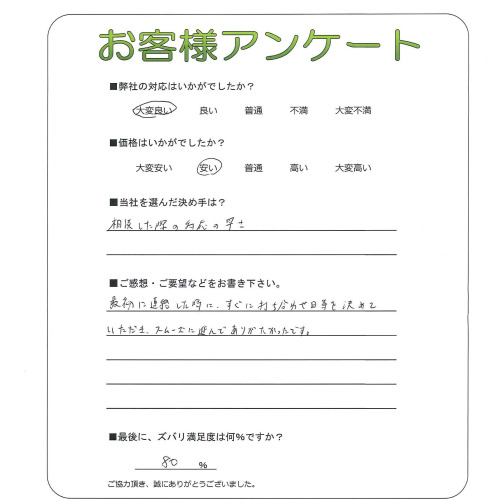 お客様アンケート
■弊社の対応はいかがでしたか？
大変良い 良い 普通 不満 大変不満
■価格はいかがでしたか？
大変安い 安い 普通 高い 大変高い
■当社を選んだ決め手は？
相談した際の対応の早さ
■ご感想・ご要望などをお書き下さい。
最初に連絡した時に、すぐに打ち合わせ日等を決めて
いただき、スムーズに進んでありがたかったです。
■最後に、ズバリ満足度は何%ですか？
80 %
ご協力頂き、誠にありがとうございました。